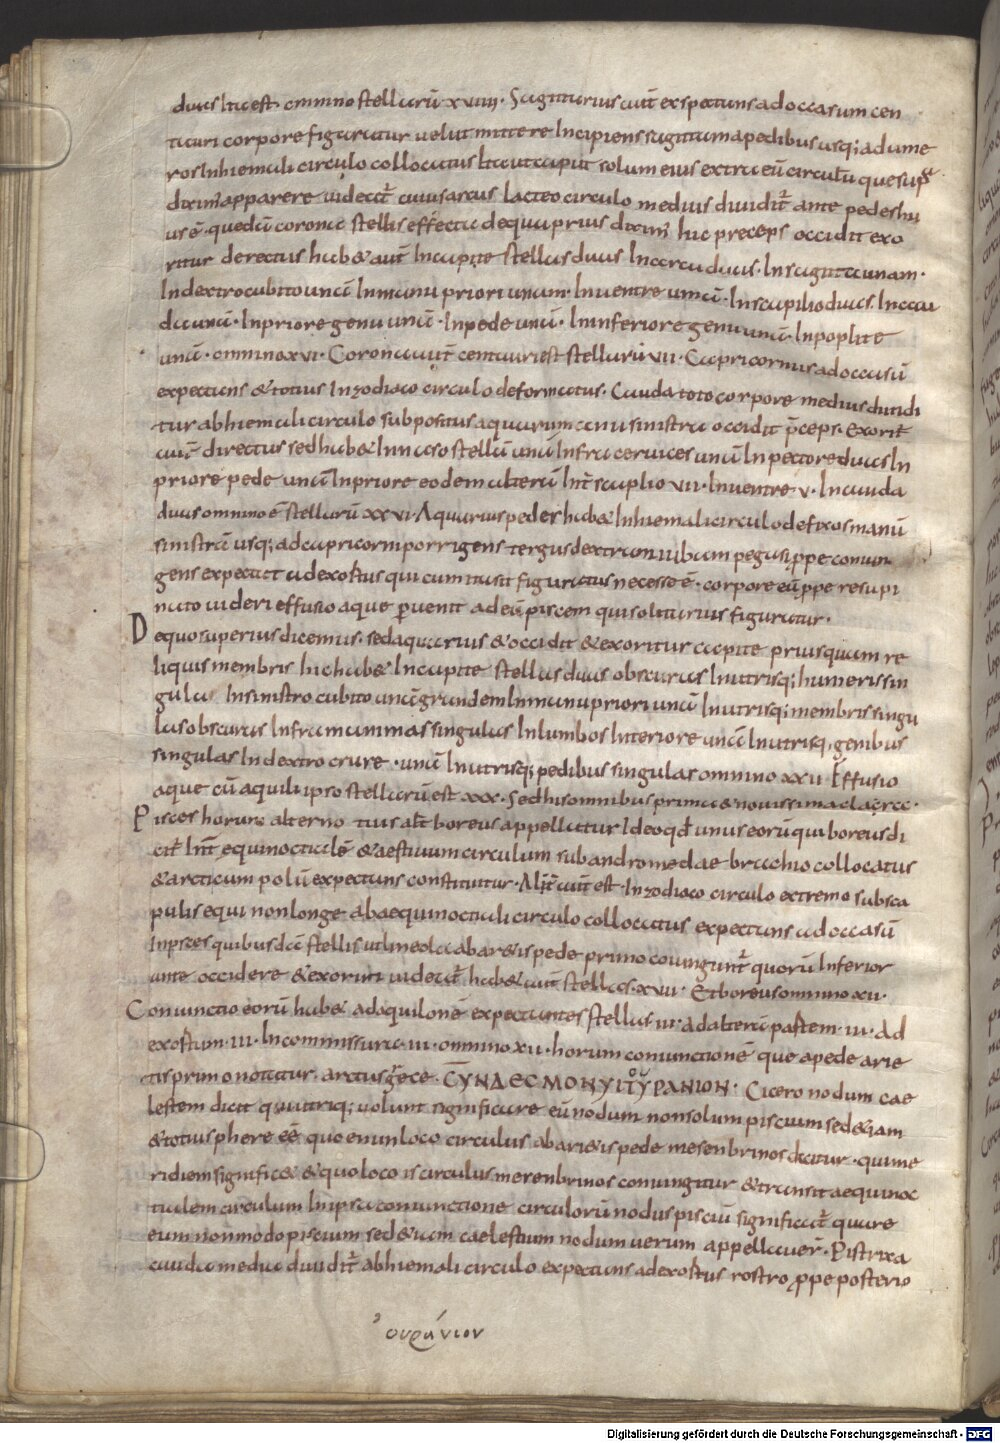 duas hic est omnino stellarū xviiii. Sagittarius aut̄ expectans ad occasum cen
tauri corpore figuratur uelut mittere Incipiens sagittam apedibus usq; ad ume
ros Inhiemali circulo collocatus hac ut caput solum eius extra eū circulū que sup̄
dixim' apparere uideat̄ cuius arcus lacteo circulo medius diuidit̄ ante pedes hu
ius ē quedā corona stellis effecta dequa prius dixim' hic preceps occidit exo
ritur derectus hab& aut̄ Incapite stellas duas Inarcu duas. Insagitta unam.
Indextro cubito unā Inmanu priori unam. Inuentre unā. Inscapilio duas. Incau
da unā. Inpriore genu unā. Inpede unā. Ininferiore genu unā. Inpoplite
unā. omnino xvi. Corona aut̄ centauri est stellarū vii. Capricornus ad occasū
expectans & totus Inzodiaco circulo deformatus. Cauda toto corpore medius diuidi
tur abhiemali circulo subpositus aquarii manu sinistra occidit p̄ceps. Exorit̄
aut̄ directus sed hab& Innaso stellā unā Infra ceruices unā Inpectore duas In
priore pede unā Inpriore eodem alterā Int̄ scaplio vii. Inuentre v. Incauda
duas omnino ē stellarū xxvi. Aquarius pedes hab& Inhiemali circulo defixos manū
sinistrā usq; ad capricorni porrigens tergus dextram iubam pegasi ꝓpe contin
gens expectat ad exortus qui cum ita sit figuratus necesse ē. corpore eū ꝓpe resupi
nato uideri effusio aque ꝑuenit ad eū piscem qui solitarius figuratur.
De quo superius dicemus. sed aquarius & occidit & exoritur capite prius quam re
liquis membris hic hab& Incapite stellas duas obscuras Inutrisq; humeris sin
gulas Insinistro cubito unā grandem Inmanu priori unā Inutrisq; membris singu
las obscuras Infra mammas singulas Inlumbos Interiore unā Inutrisq; genibus
singulas Indextro crure . unā Inutrisq; pedibus singulas omnino xxii Effusio
aque cū aquili ipso stellarū est xxx. Sed his omnibus prima & nouissima clarae.
Pisces horum alterno tius alt̄ boreus appellatur Ideo qđ unus eorū qui boreus di
cit̄ Int̄ equinoctialē & aestiuum circulum sub andromedae brachio collocatus
& arcticum polū expectans constituitur. Alit̄ aut̄ est. Inzodiaco circulo extremo subsca
pulis equi non longe abaequinoctiali circulo collocatus expectans ad occasū
Inpisces quibusdā stellis ut lineola abari&is pede primo coniungunt̄ quorū Inferior
ante occidere & exoriri uideat̄ hab& aut̄ stellas. xvii. Et boreus omnino xii.
Coniunctio eorū hab& adaquilonē expectantes stellas iii. ad alterā partem . iii. Ad
exortum . iii. Incommissura . iii. omnino xii. horum coniunctionē que apede arie
tis primo notatur. arctus grece. CYNΔECMONYITYPANION. Cicero nodum cae
lestem dicit quiutriq; uolunt significare eū nodum non solum piscium sed & iam
& totius phere eē quo enim loco circulus abari&is pede mesenbrinos dicitur . qui me
ridiem signific& & quo loco is circulus merenbrinos coniungitur & transit aequinoc
tialem circulum Inipsa coniunctione circulorū nodus pisciū significat̄ quare
eum non modo piscium sed & iam caelestium nodum uerum appellauer̄. Pistrixa
cauda media diuidit̄ abhiemali circulo expectans adexortus rostro ꝓpe posterio
ουράνιον
Digitalisierung gefördert durch die Deutsche Forschungsgemeinschaft - DFG